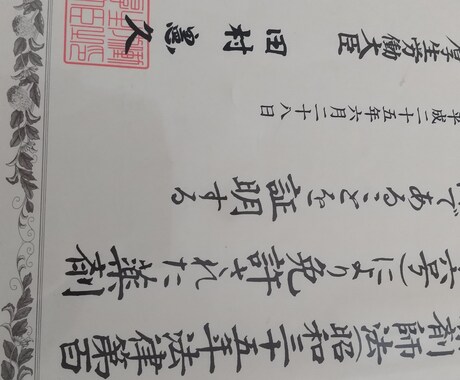 剤師法(昭和三十五年法律第百
六号)により免許された薬剤
であることを証明する
平成二十五年六月二十八日
厚生労働大臣
田村憲久